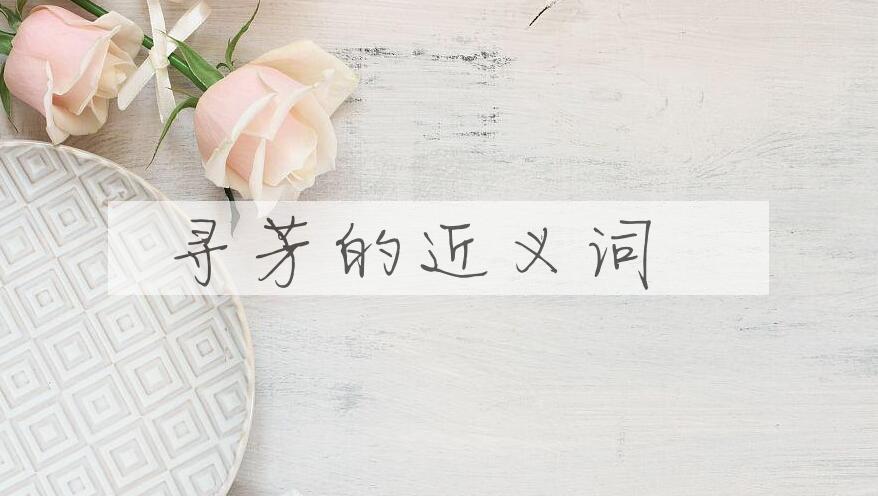 寻芳的近义词